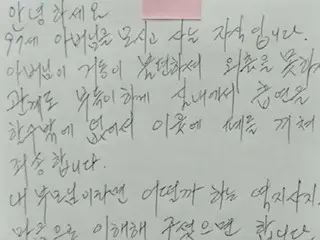 안녕하세요
97세 아버님을 모시고 사는 자식입니다.
아버님이 거동이 불편하셔 외출을 못하
관계로 부득이하게 실내에서 흡연을
할수밖에 없어서 이곳에 폐를 끼쳐
죄송합니다.
내 부모님이라면 어떨까 하는 역지사지
마음으로 이해해 주셨으면 합니다.